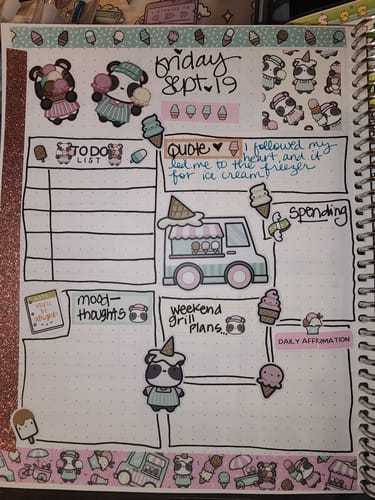 friday
Sept. 19
TO DO
LIST
QUOTE
I followed my
heart, and it
led me to the freezer
for ice cream
Spending
mood-
thoughts
weekend
grill
Plans...
DAILY AFFIRMATION